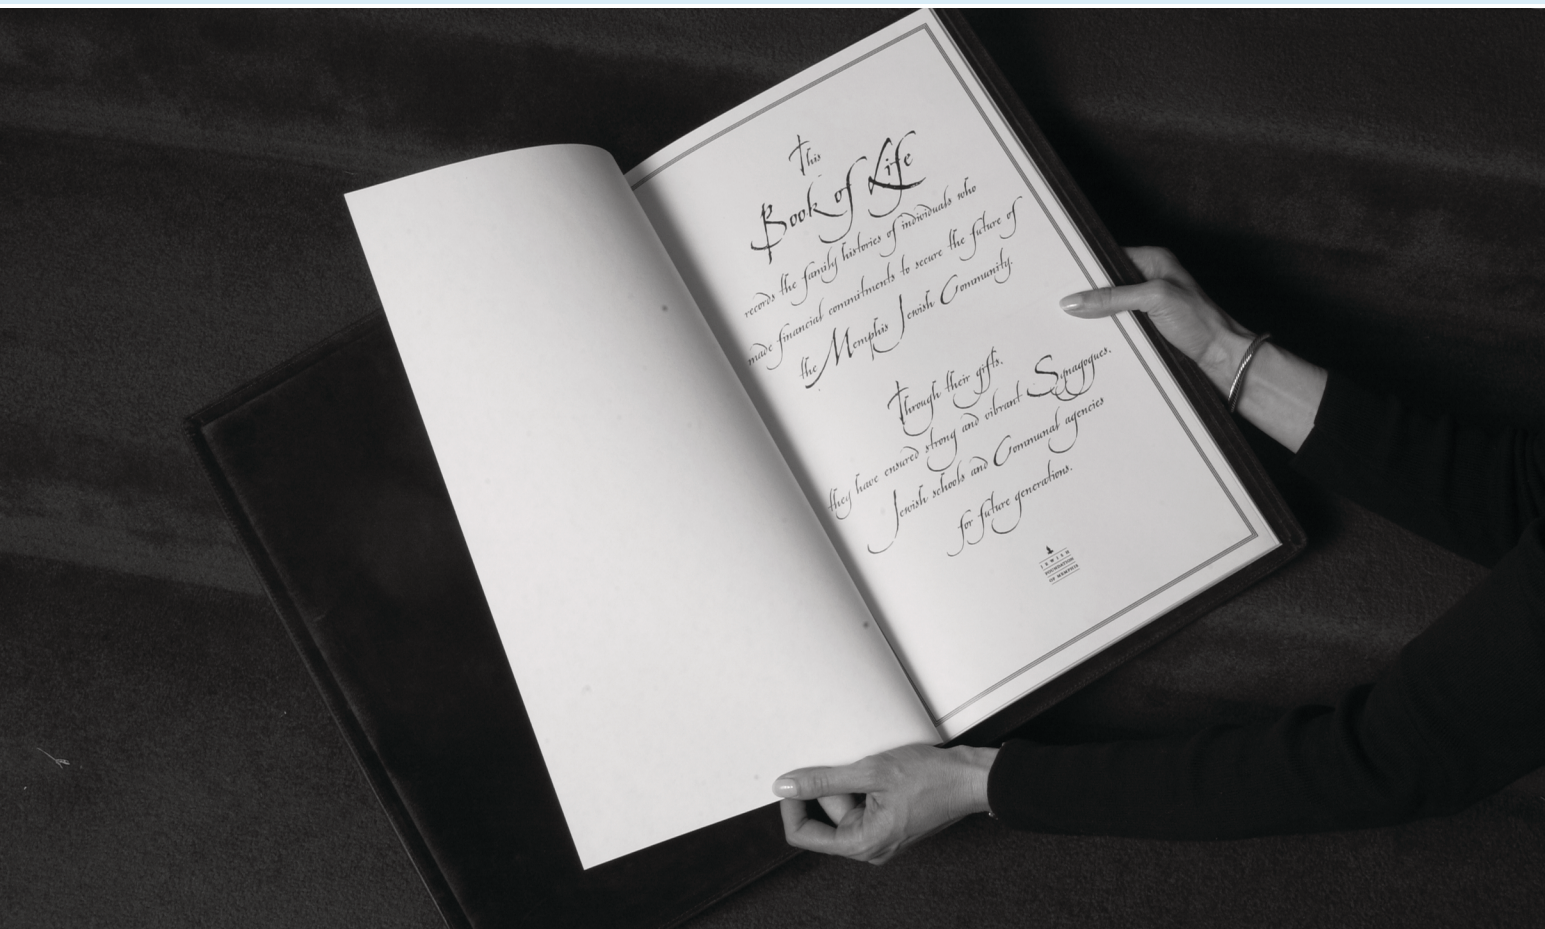 This
Book of Life
records the family histories of individuals who
made financial commitments to secure the future of
the Memphis Jewish Community.
Through their gifts,
they have ensured strong and vibrant Synagogues,
Jewish schools and Communal agencies
for future generations.
JEWISH
FOUNDATION
OF MEMPHIS